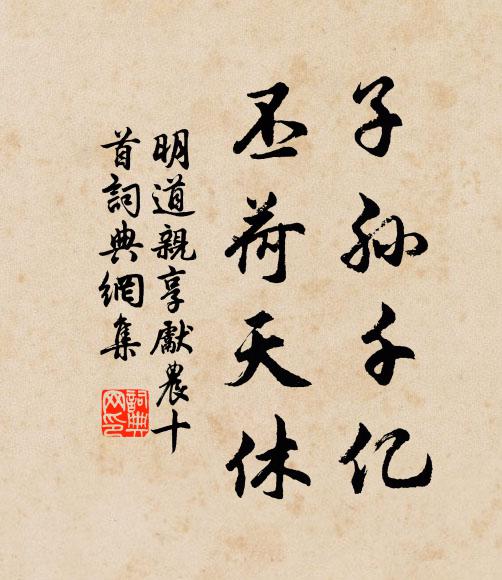 子孙千亿
丕荷天休
明道親享獻農十
首詞典網集
詞典
网印